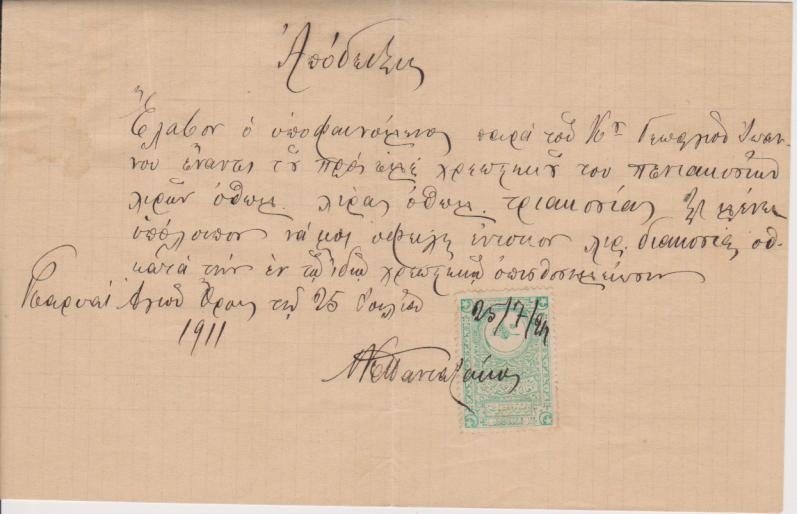 Ἀπόδειξις
Ἔλαβον ὁ ὑποφαινόμενος παρὰ τοῦ Κου Γεωργίου Ἰωάν-
νου ἔναντι τοῦ πρός με χρεωστικοῦ του πεντακοσίων
λιρῶν ὀθωμ. λίρας ὀθωμ. τριακοσίας καὶ μένει
ὑπόλοιπον νά μοι ὀφείλῃ ἔντοκον λίρ. διακοσίας ὀθ.
κατὰ τὴν ἐν τῷ ἰδίῳ χρεωστικῷ ὀπισθοσημείωσιν
Καρυαὶ Ἁγίου Ὄρους τῇ 25 Ἰουλίου
1911
25/7/